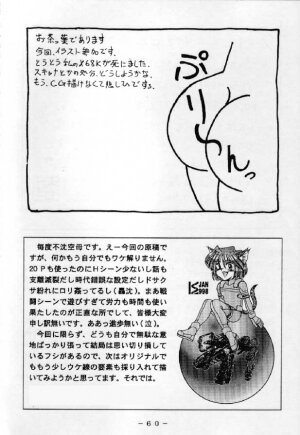 お茶っ葉であります
今回、イラスト参加です。
とうとう私のX68Kが死にました。
スキャナとかの処分、どうしようかな。
もう、CG描けなくて悲しひです。
ぷりんっ
毎度不沈空母です。えー今回の原稿で
すが、何かもう自分でもワケ解りません。
20Pも使ったのにHシーン少ないし話も
支離滅裂だし時代錯誤な設定だしドサク
サ紛れにロリ姦ってるし(轟沈)。まあ戦
闘シーンで遊びすぎて労力も時間も使い
果たしたのが正直な所でして、皆様大変
申し訳無いです。ああっ進歩無い(泣)。
今回に限らず、どうも自分で無駄な意
地ばっかり張って結局は思い切り損して
いるフシがあるので、次はオリジナルで
ももう少しウケ線の要素も採り入れて描
いてみようかと思ってます。それでは。
JAN
1998
-69-